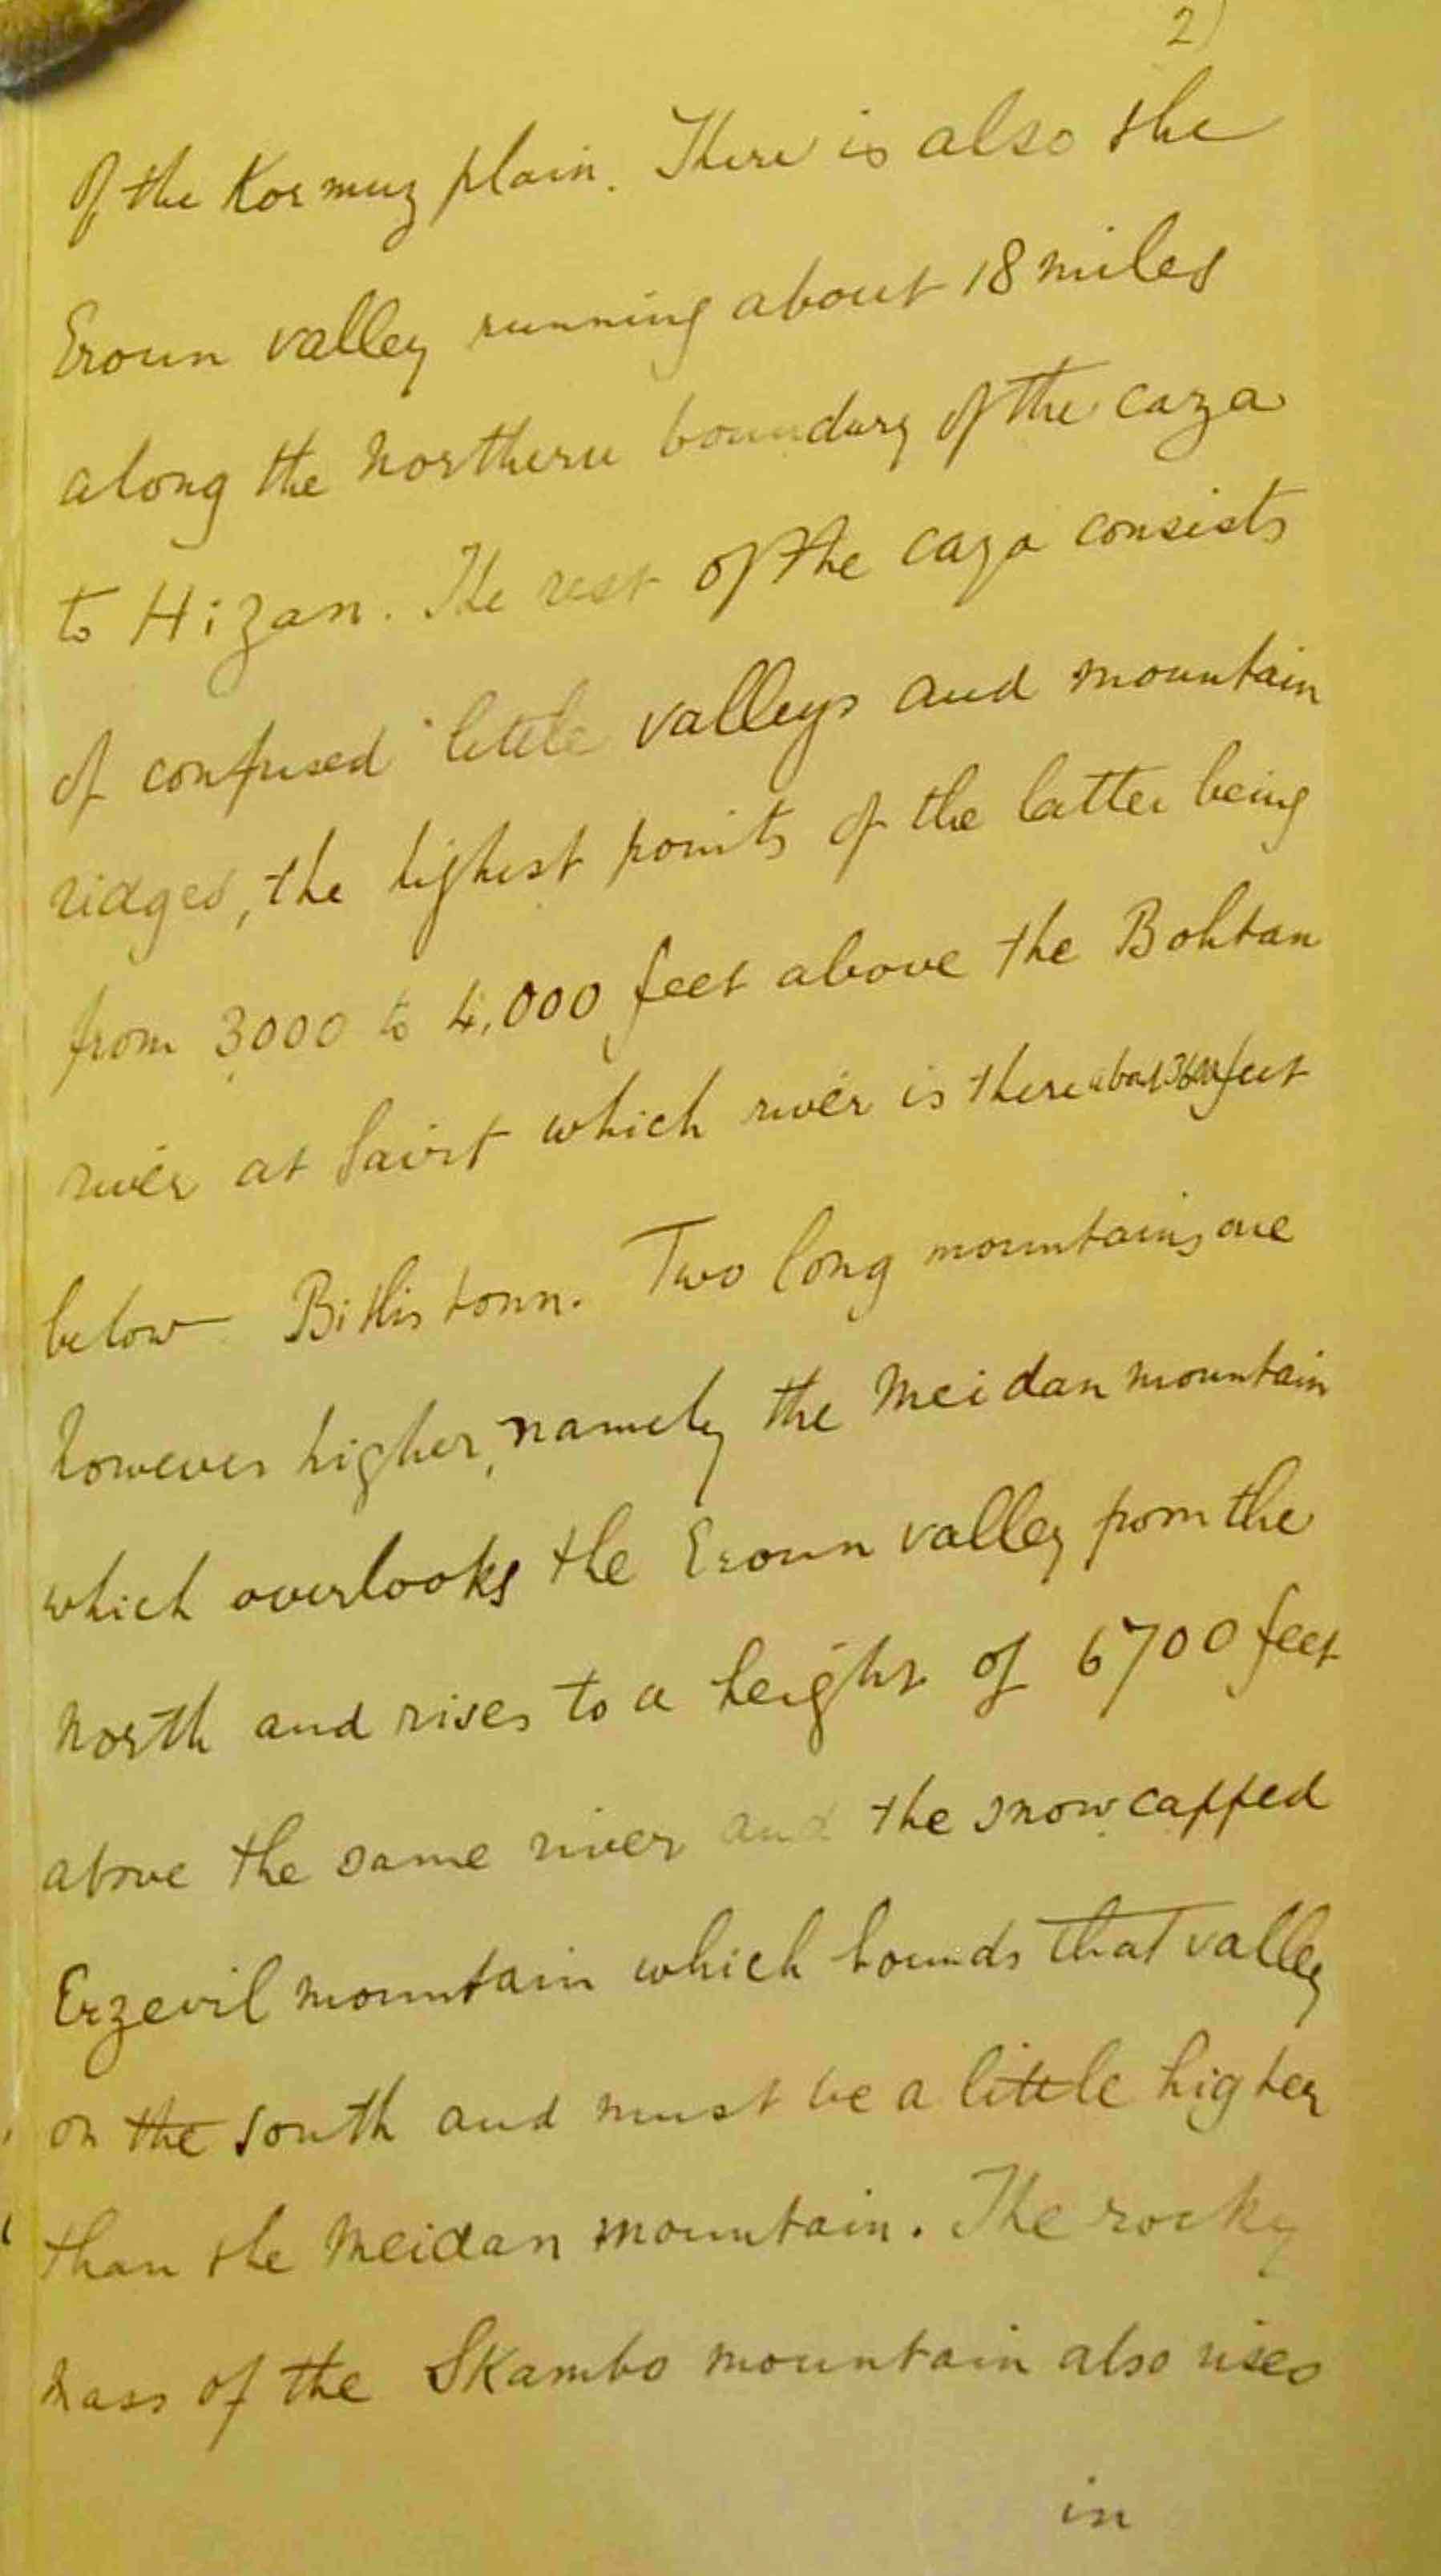 2)
of the Kormuz plain. There is also the
Eroun valley running about 18 miles
along the northern boundary of the caza
to Hizan. The rest of the caza consists
of confused little valleys and mountain
ridges, the highest points of the latter being
from 3000 to 4,000 feet above the Bohtan
river at Sairt which river is there about feet
below Bitlis town. Two long mountains are
however higher, namely the Meidan mountain
which overlooks the Eroun valley from the
north and rises to a height of 6700 feet
above the same river and the snow capped
Erzevil mountain which bounds that valley
on the south and must be a little higher
than the Meidan mountain. The rocky
mass of the Skambo mountain also rises
in